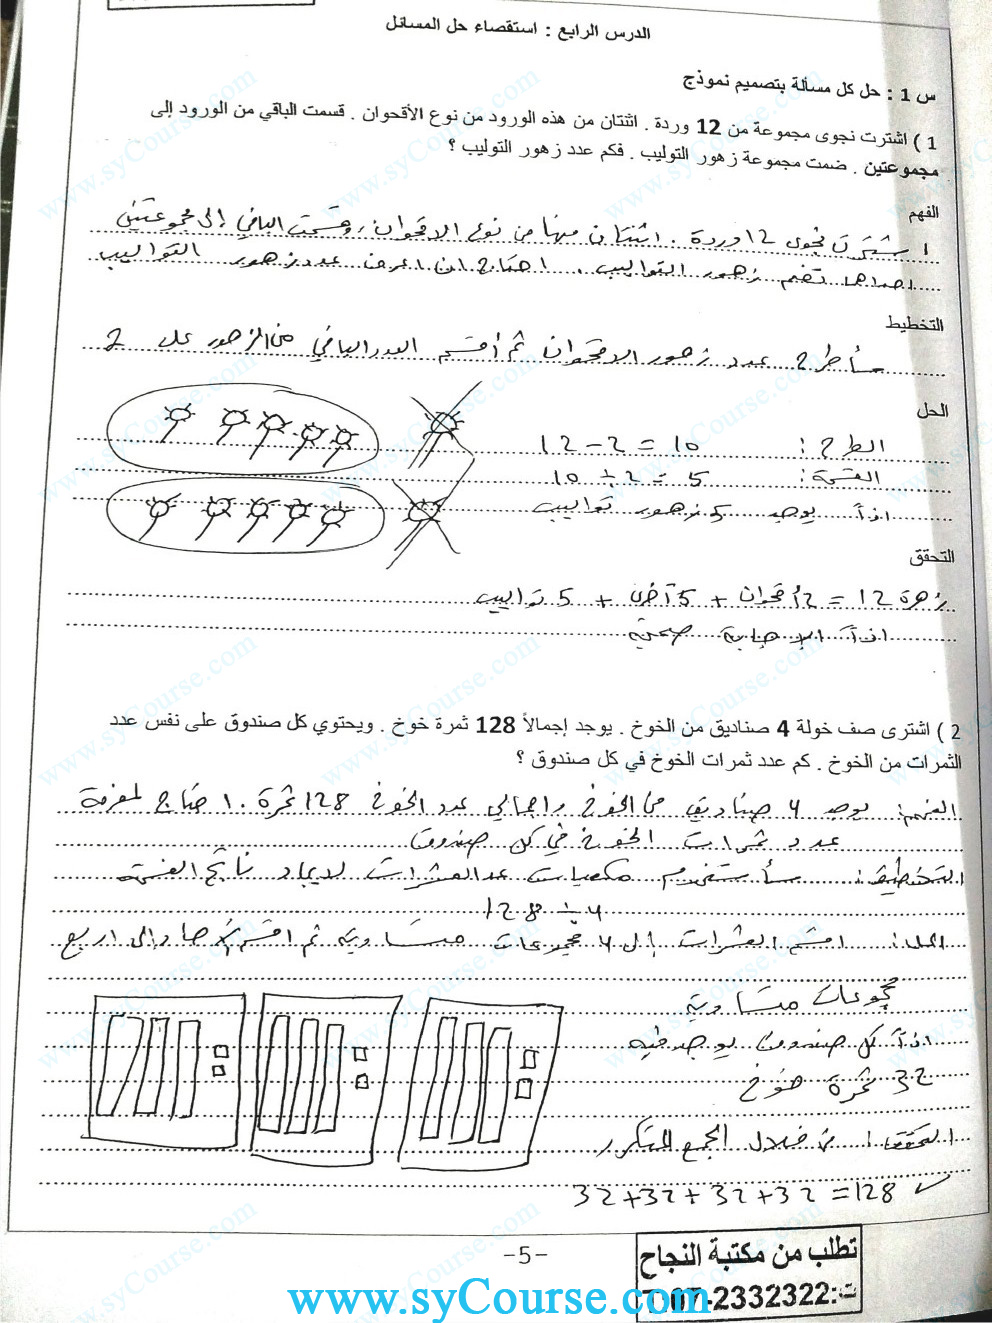 الدرس الرابع : استقصاء حل المسائل
س 1 : حل كل مسألة بتصميم نموذج
1 ) اشترت نجوى مجموعة من 12 وردة . اثنتان من هذه الورود من نوع الأقحوان . قسمت الباقي من الورود إلى
مجموعتين . ضمت مجموعة زهور التوليب . فكم عدد زهور التوليب ؟
الفهم
اشترت نجوى 12 وردة . اثنتان منها من نوع الاقحوان . وقسمت الباقي إلى مجموعتين
احداها تضم زهور التواليب . احتاج ان اعرف عدد زهور التواليب
التخطيط
سأطرح عدد زهور الاقحوان ثم أقسم العدد الباقي من الزهور على 2
الحل
الطرح : 12 - 2 = 10
القسمة : 10 ÷ 2 = 5
اذاً يوجد 5 زهور تواليب
التحقق
زهرة 12 = 2 أقحوان + 5 أخرى + 5 تواليب
اذاً الاجابة صحيحة
2 ) اشترى صف خولة 4 صناديق من الخوخ . يوجد إجمالاً 128 ثمرة خوخ . ويحتوي كل صندوق على نفس عدد
الثمرات من الخوخ . كم عدد ثمرات الخوخ في كل صندوق ؟
الفهم : يوجد 4 صناديق من الخوخ واجمالي عدد الخوخ 128 ثمرة . احتاج لمعرفة
عدد ثمرات الخوخ في كل صندوق
التخطيط : سأستخدم مكعبات عد العشرات لايجاد ناتج القسمة
128 ÷ 4
الحل : اقسم العشرات إلى 4 مجموعات متساوية ثم اقسم الآحاد إلى اربع
مجموعات متساوية
اذاً كل صندوق يوجد فيه
32 ثمرة خوخ
التحقق : من خلال الجمع المتكرر
32+32+32+32=128 ✓
-5-
تطلب من مكتبة النجاح
ت:07-2332322
www.syCourse.com